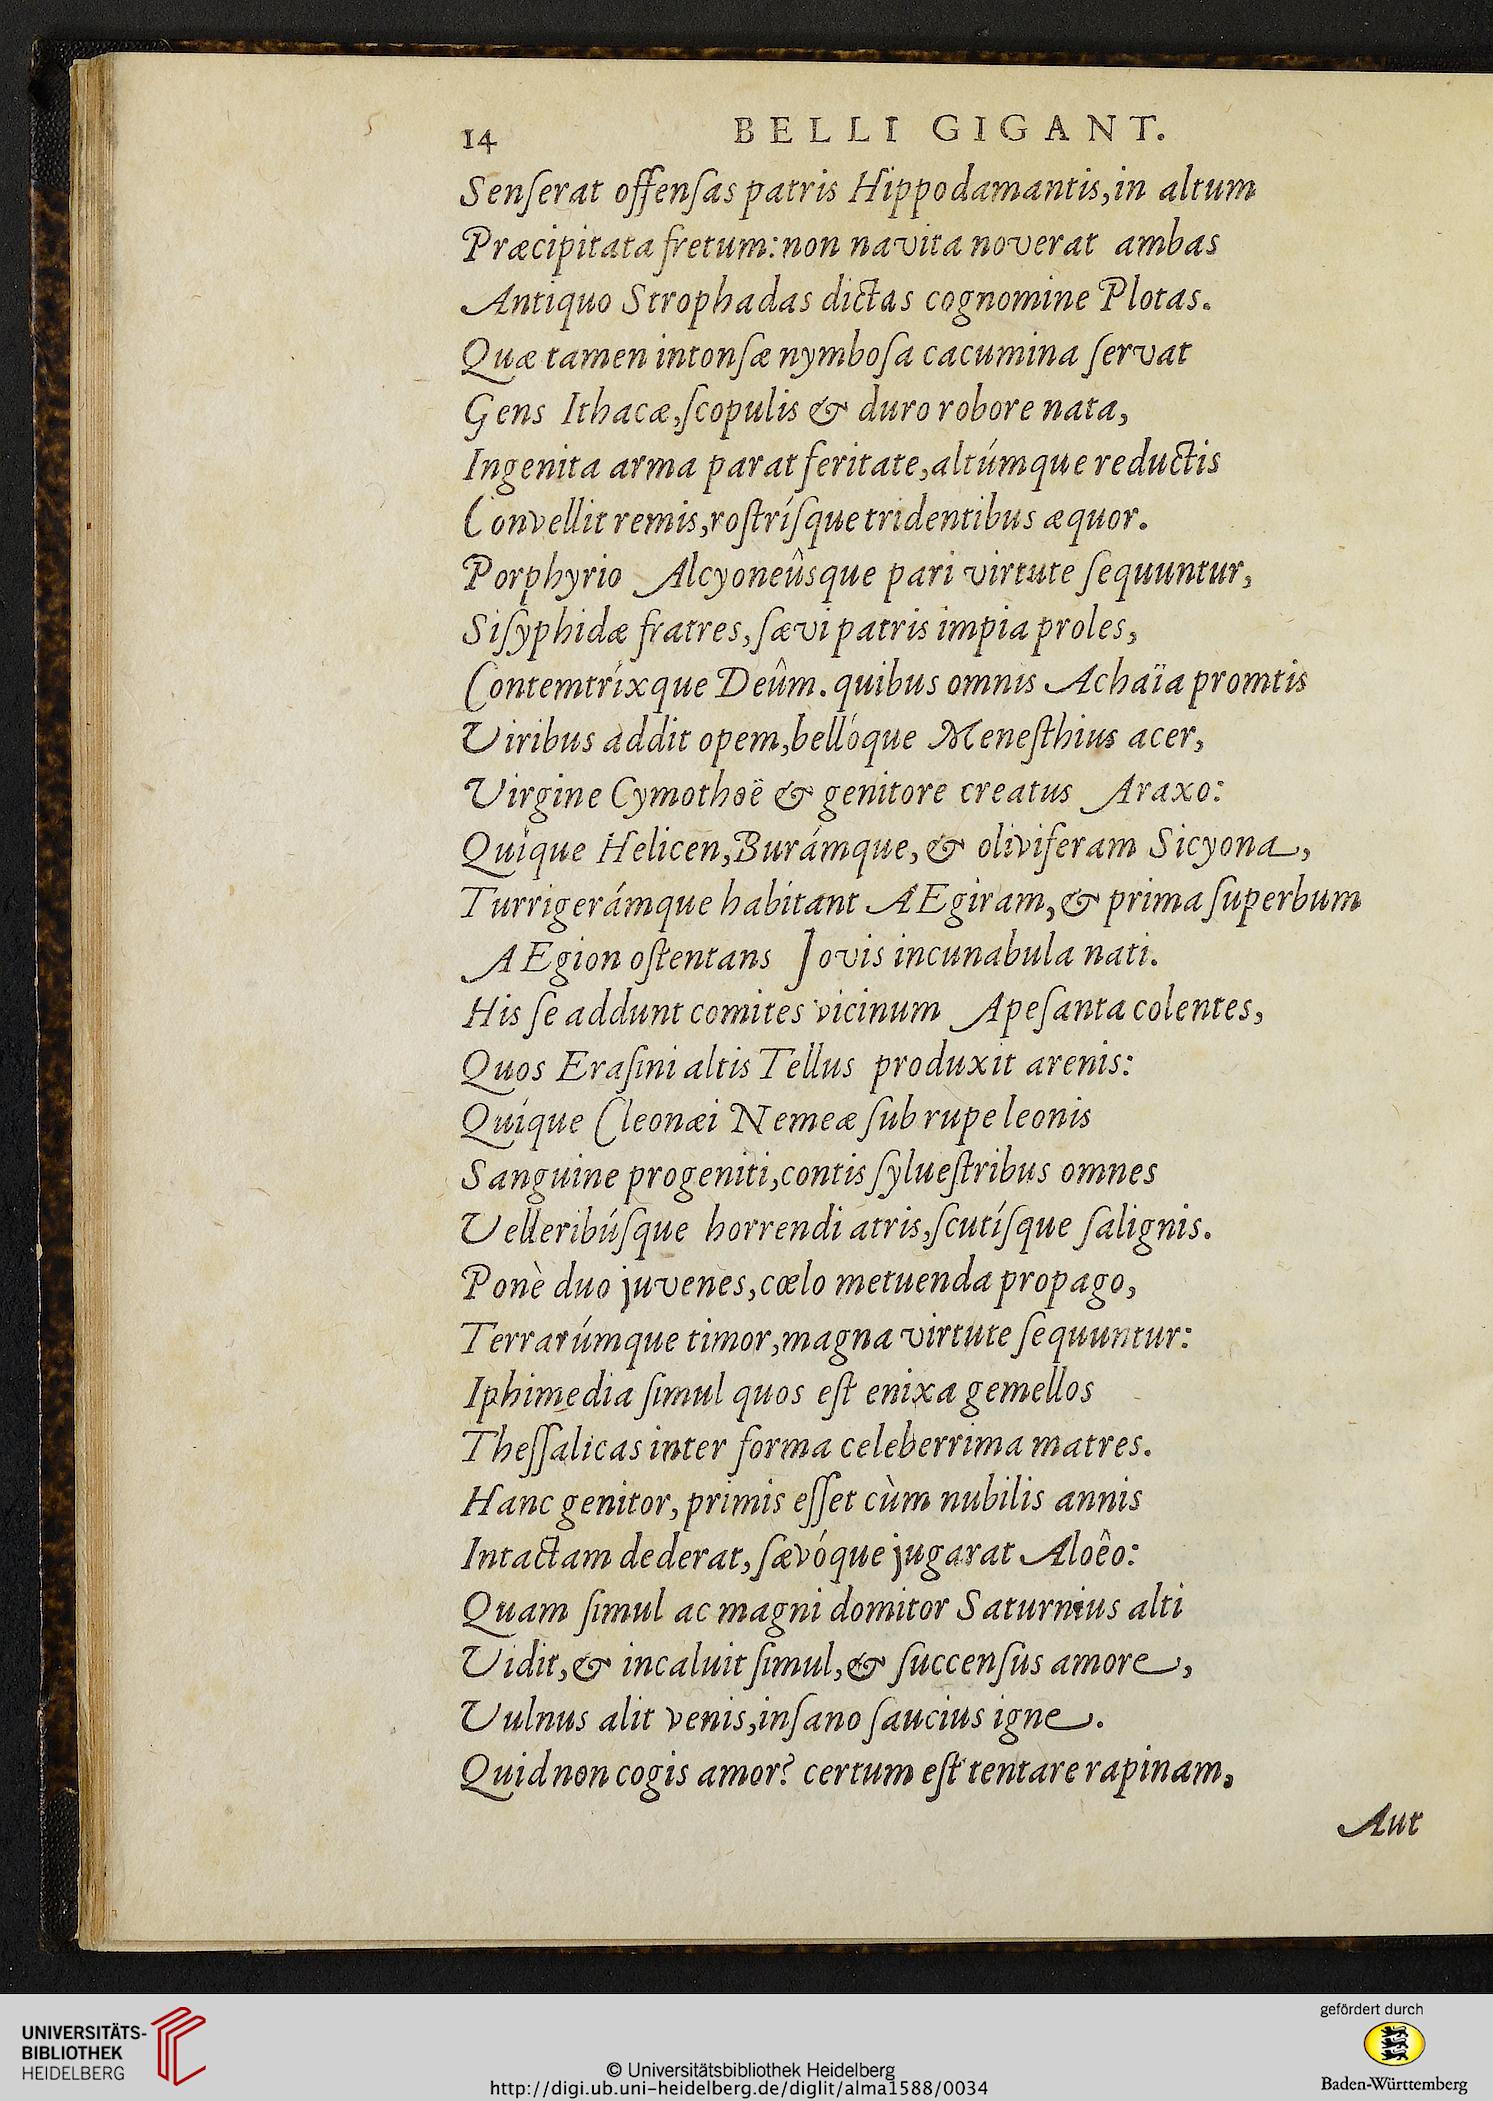 14 BELLI GIGANT.
Senſerat offenſas patris Hippodamantis, in altum
Præcipitata fretum: non navita noverat ambas
Antiquo Strophadas dictas cognomine Plotas.
Quæ tamen intonſæ nymboſa cacumina ſervat
Gens Ithacæ, ſcopulis & duro robore nata,
Ingenita arma parat feritate, altúmque reductis
Convellit remis, roſtríſque tridentibus æquor.
Porphyrio Alcyoneûsque pari virtute ſequuntur,
Siſyphidæ fratres, ſævi patris impia proles,
Contemtríxque Deûm. quibus omnis Achaïa promtis
Viribus addit opem, bellóque Meneſthius acer,
Virgine Cymothoë & genitore creatus Araxo:
Quíque Helicen, Burámque, & oliviferam Sicyona,
Turrigerámque habitant AEgiram, & prima ſuperbum
AEgion oſtentans Jovis incunabula nati.
His ſe addunt comites vicinum Apeſanta colentes,
Quos Eraſini altis Tellus produxit arenis:
Quíque Cleonæi Nemeæ ſub rupe leonis
Sanguine progeniti, contis ſylueſtribus omnes
Velleribúſque horrendi atris, ſcutíſque ſalignis.
Ponè duo juvenes, cœlo metuenda propago,
Terrarúmque timor, magna virtute ſequuntur:
Iphimedia ſimul quos eſt enixa gemellos
Theſſalicas inter forma celeberrima matres.
Hanc genitor, primis eſſet cùm nubilis annis
Intactam dederat, ſævóque jugarat Aloêo:
Quam ſimul ac magni domitor Saturnius alti
Vidit, & incaluit ſimul, & ſuccenſus amore,
Vulnus alit venis, inſano ſaucius igne.
Quid non cogis amor? certum eſt tentare rapinam,
Aut
UNIVERSITÄTS-
BIBLIOTHEK
HEIDELBERG
© Universitätsbibliothek Heidelberg
http://digi.ub.uni-heidelberg.de/diglit/alma1588/0034
gefördert durch
Baden-Württemberg